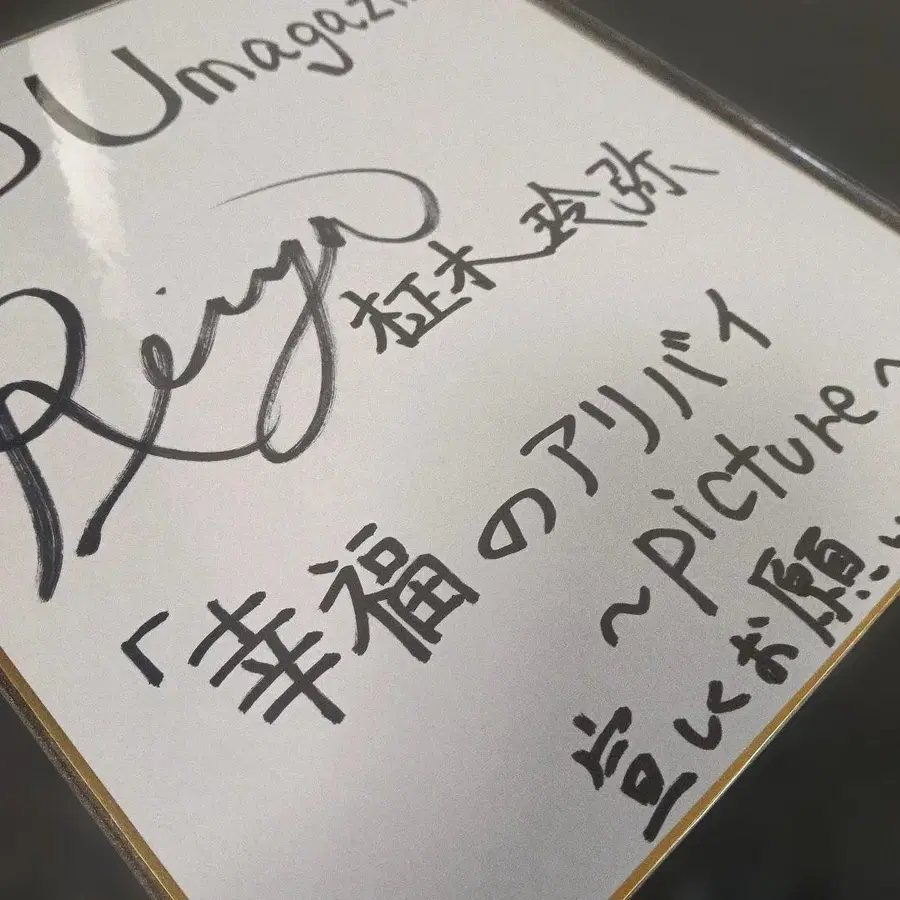 Umagazi
Reiya
柾木玲弥
「幸福のアリバイ
~picture~
宜しくお願い